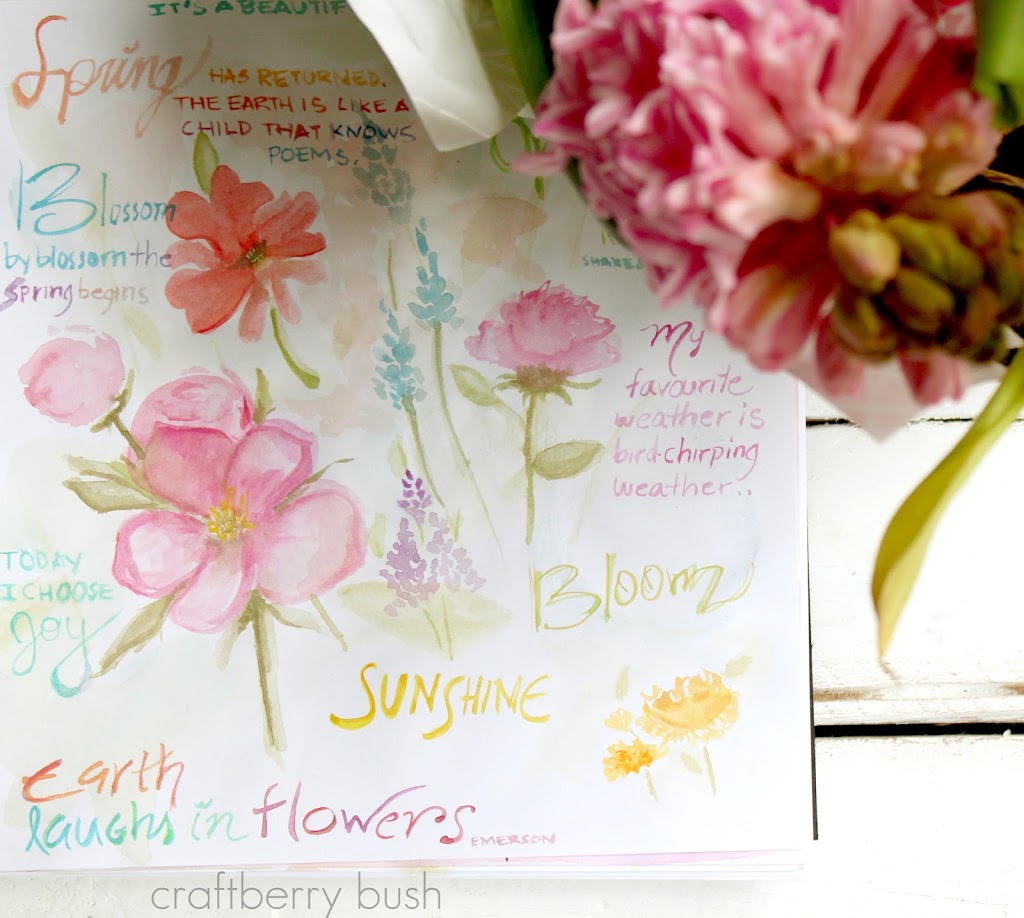 IT'S A
Spring HAS RETURNED.
THE EARTH IS LIKE A
CHILD THAT KNOWS
POEMS.
Blossom
by blossom the
spring begins
My
favourite
weather is
bird-chirping
weather..
TODAY
I CHOOSE
joy
Bloom
SUNSHINE
Earth
laughs in flowers
EMERSON
craftberry bush